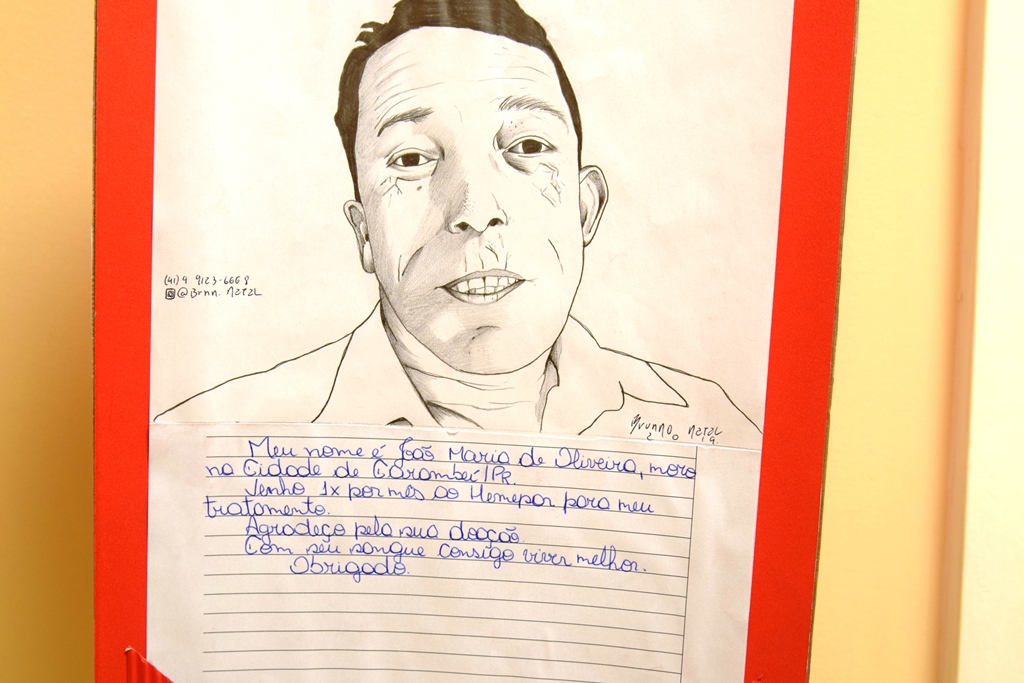 (41) 9 9123-6668
@Brnn. Natal
Brunno Natal
2 0 19
Meu nome é João Maria de Oliveira, moro
na Cidade de Carambeí/Pr.
Venho 1x por mês ao Hemepar para meu
tratamento.
Agradeço pela sua doação
Com seu sangue consigo viver melhor.
Obrigado.